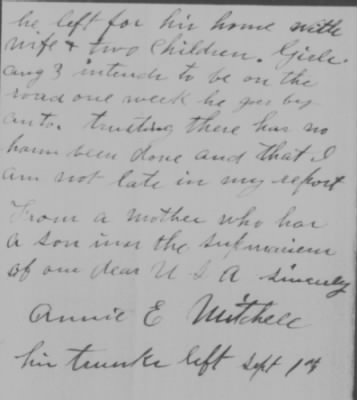 he left for his home with
wife & two Children. Girls.
aug 3 intends to be on the
road one week he goes by
auto. trusting there has no
harm been done and that I
am not late in my report
From a Mother who has
a son inn the
of our dear U S A sincerely
Annie E Mitchell
his trunks left Sept 1st